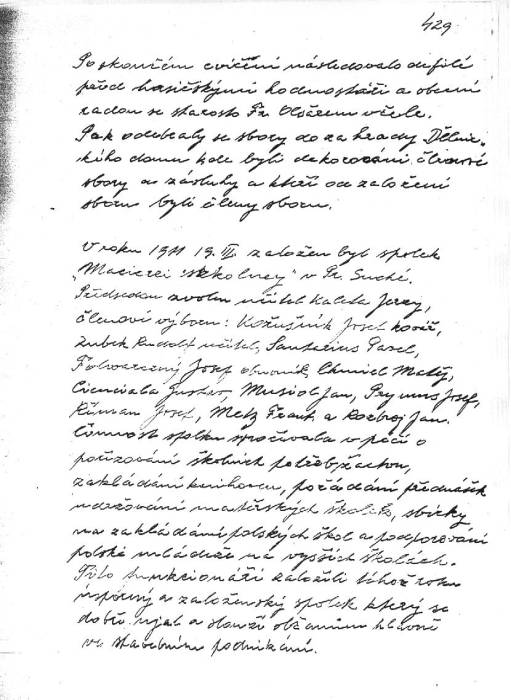 429
Po skončení cvičení následovalo defilé
před hasičskými hodnostáři a obecní
radou se starostou Fr. v čele.
Pak odebraly se sbory do zahrady Dělnic-
kého domu kde byli dekorováni členové
sbory za zásluhy a kteří od založení
sboru byli členy sboru.
V roku 1911 19. III. založen byl spolek
„Macierzi szkolnej" v Pr. Suché.
Předsedou zvolen učitel Kaleta Jerzy,
členové výboru: Kožušník Josef kovář,
Zubek Rudolf učitel, Santarius Pavel,
Folwarczný Josef obuvník, Chmiel Matěj,
Cienciala Gustav, Musiol Jan, Prymus Josef,
Josef, Metz Frant. a Rozbroj Jan.
Činnost spolku spočívala v péči o
pořizování školních potřeb žactvu,
zakládání knihoven, pořádání přednášek
udržování mateřských školek, sbírky
na zakládání polských škol a podporování
polské mládeže na vyšších školách.
Tito funkcionáři založili téhož roku
úsporný a založenský spolek který se
dobře ujal a slouží občanům hlavně
ve stavebním podnikání.